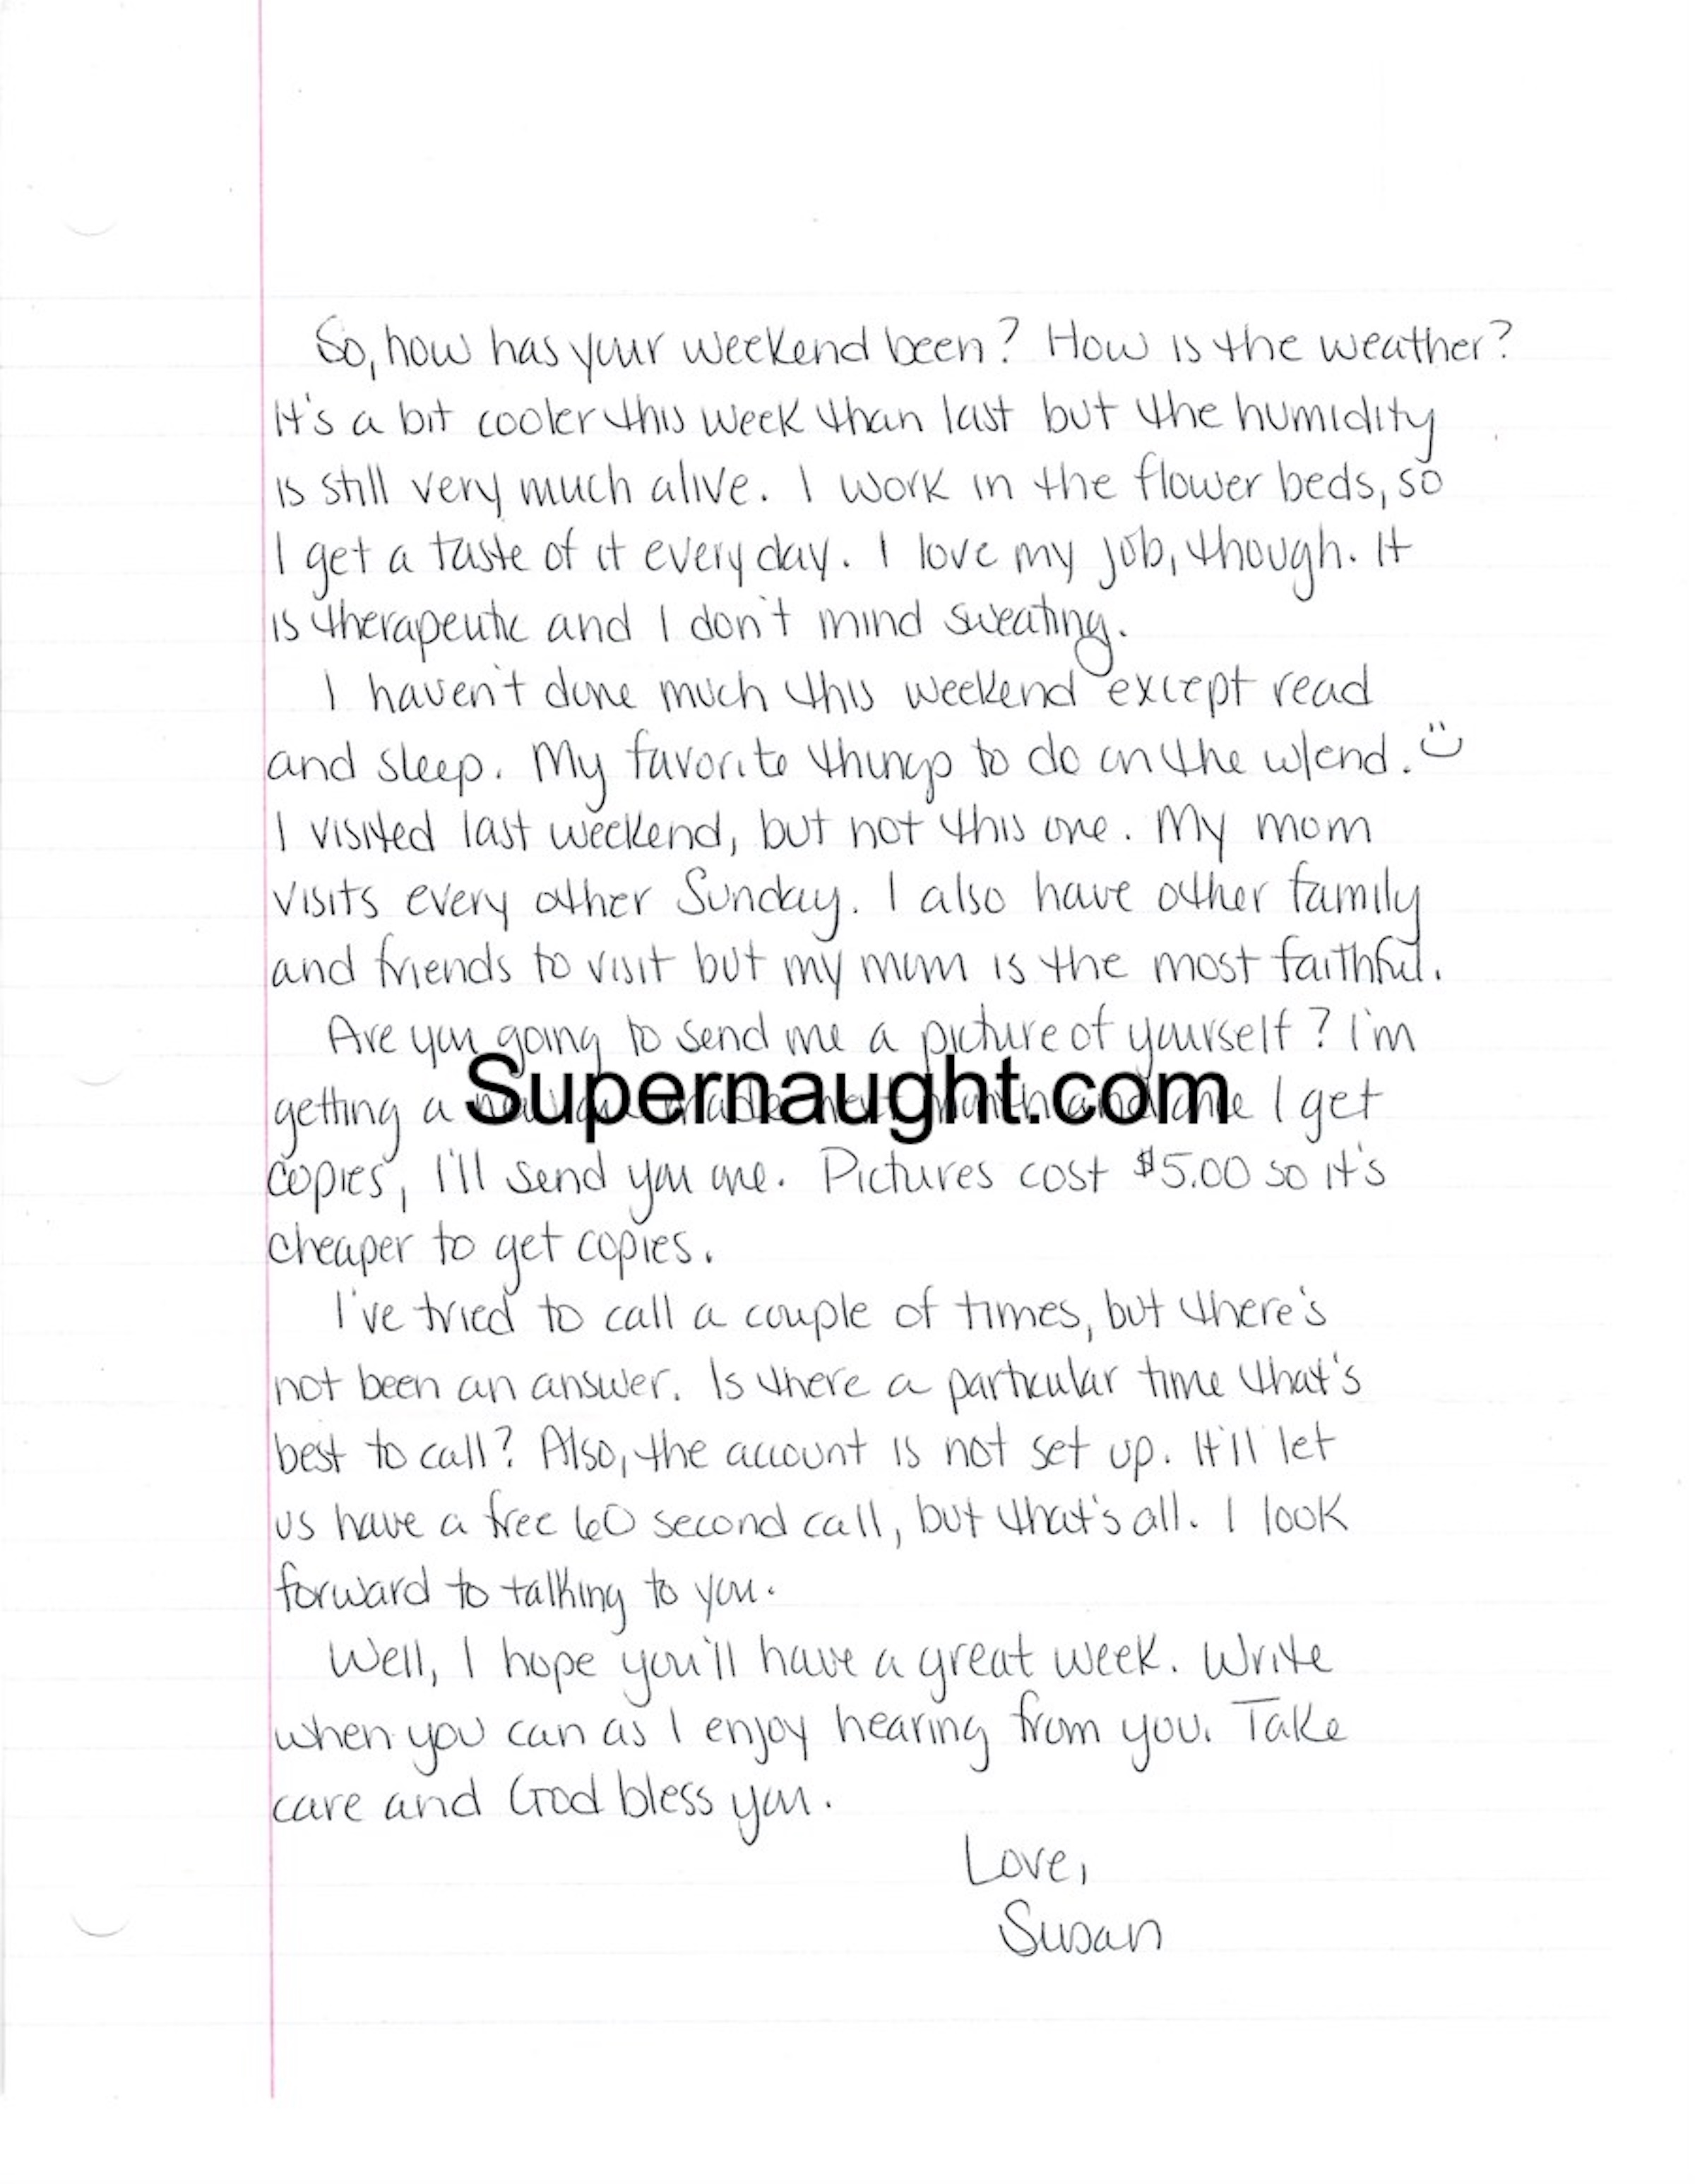 So, how has your weekend been? How is the weather?
It's a bit cooler this week than last but the humidity
is still very much alive. I work in the flower beds, so
I get a taste of it everyday. I love my job, though. It
is therapeutic and I don't mind sweating.
I haven't done much this weekend except read
and sleep. My favorite things to do on the w/end. :)
I visited last weekend, but not this one. My mom
visits every other Sunday. I also have other family
and friends to visit but my mom is the most faithful.
Are you going to send me a picture of yourself? I'm
getting a made next month and once I get
Supernaught.com
copies, I'll send you one. Pictures cost $5.00 so it's
cheaper to get copies.
I've tried to call a couple of times, but there's
not been an answer. Is there a particular time that's
best to call? Also, the account is not set up. It'll let
us have a free 60 second call, but that's all. I look
forward to talking to you.
Well, I hope you'll have a great week. Write
when you can as I enjoy hearing from you. Take
care and God bless you.
Love,
Susan